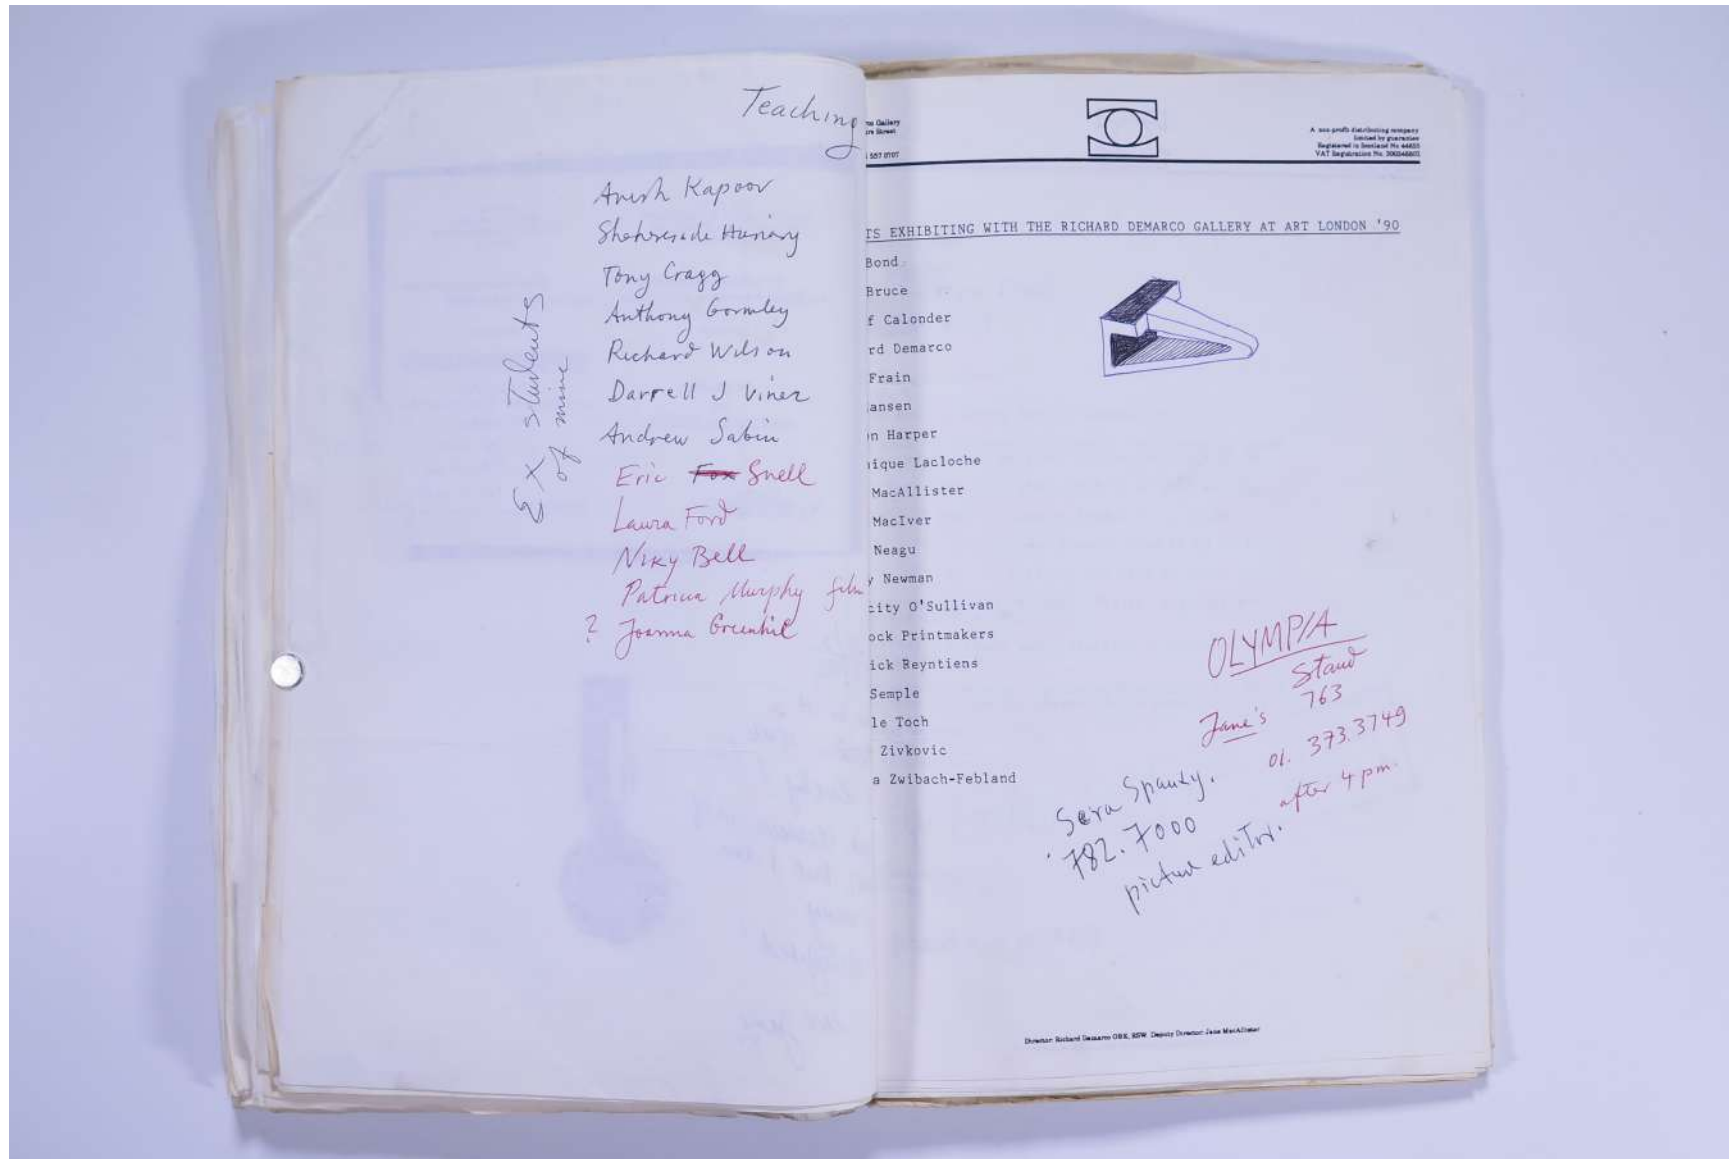 Teaching
Anish Kapoor
Tony Cragg
Anthony Gormley
Richard Wilson
Darrell J Viner
Andrew Sabin
Eric Fox Snell
Laura Ford
Niky Bell
Patricia Murphy film
? Joanna Greenhil
Ex students
of mine
Gallery
Street
557 0707
A non-profit distributing company
limited by guarantee
Registered in Scotland No
VAT Registration No.
TS EXHIBITING WITH THE RICHARD DEMARCO GALLERY AT ART LONDON '90
Bond
Bruce
f Calonder
rd Demarco
Frain
ansen
n Harper
ique Lacloche
MacAllister
MacIver
Neagu
y Newman
city O'Sullivan
ock Printmakers
ick Reyntiens
Semple
le Toch
Zivkovic
a Zwibach-Febland
OLYMPIA
Stand
763
Jane's
01. 373.3749
after 4 pm.
782.7000
picture editor.
Director: Richard Demarco OBE, RSW. Deputy Director: Jane MacAllister